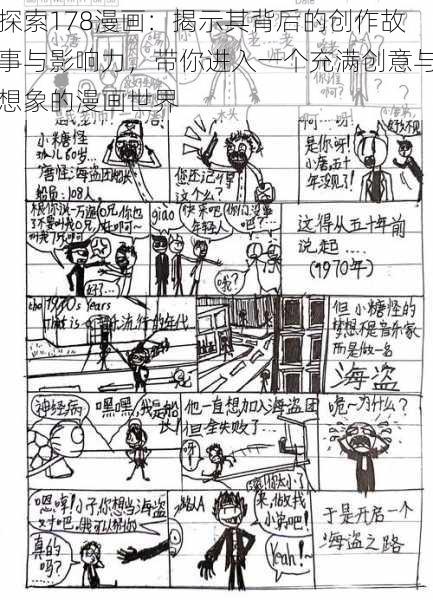 探索178漫画：揭示其背后的创作故
事与影响力，带你进入一个充满创意与
想象的漫画世界
小糖怪
孤儿60岁...
唐怪海盗团船长
船员:108人
您还记得
这个么?
啊……呀!
是你呀!
小唐五十
年没见了!
好久不见
giào
快来吧
年轻人
你们没事
吧?
哦?
好...
这得从五十年前
说起……
(1970年)
the 1970's Years
This is 音乐流行的年代
但小糖怪的
梦想不是音乐家
而是做一名
海盗
神经病
嘿嘿,我是船
长!
他一直想加入海盗团
但全失败了……
呀!
你太小了
呃一为什么?
嗯哼!小子,你想当海盗
对吧,我可以帮你
真的
吗?
路人A
来,做我
小弟吧!
Yeah!~
于是开启一个
海盗之路